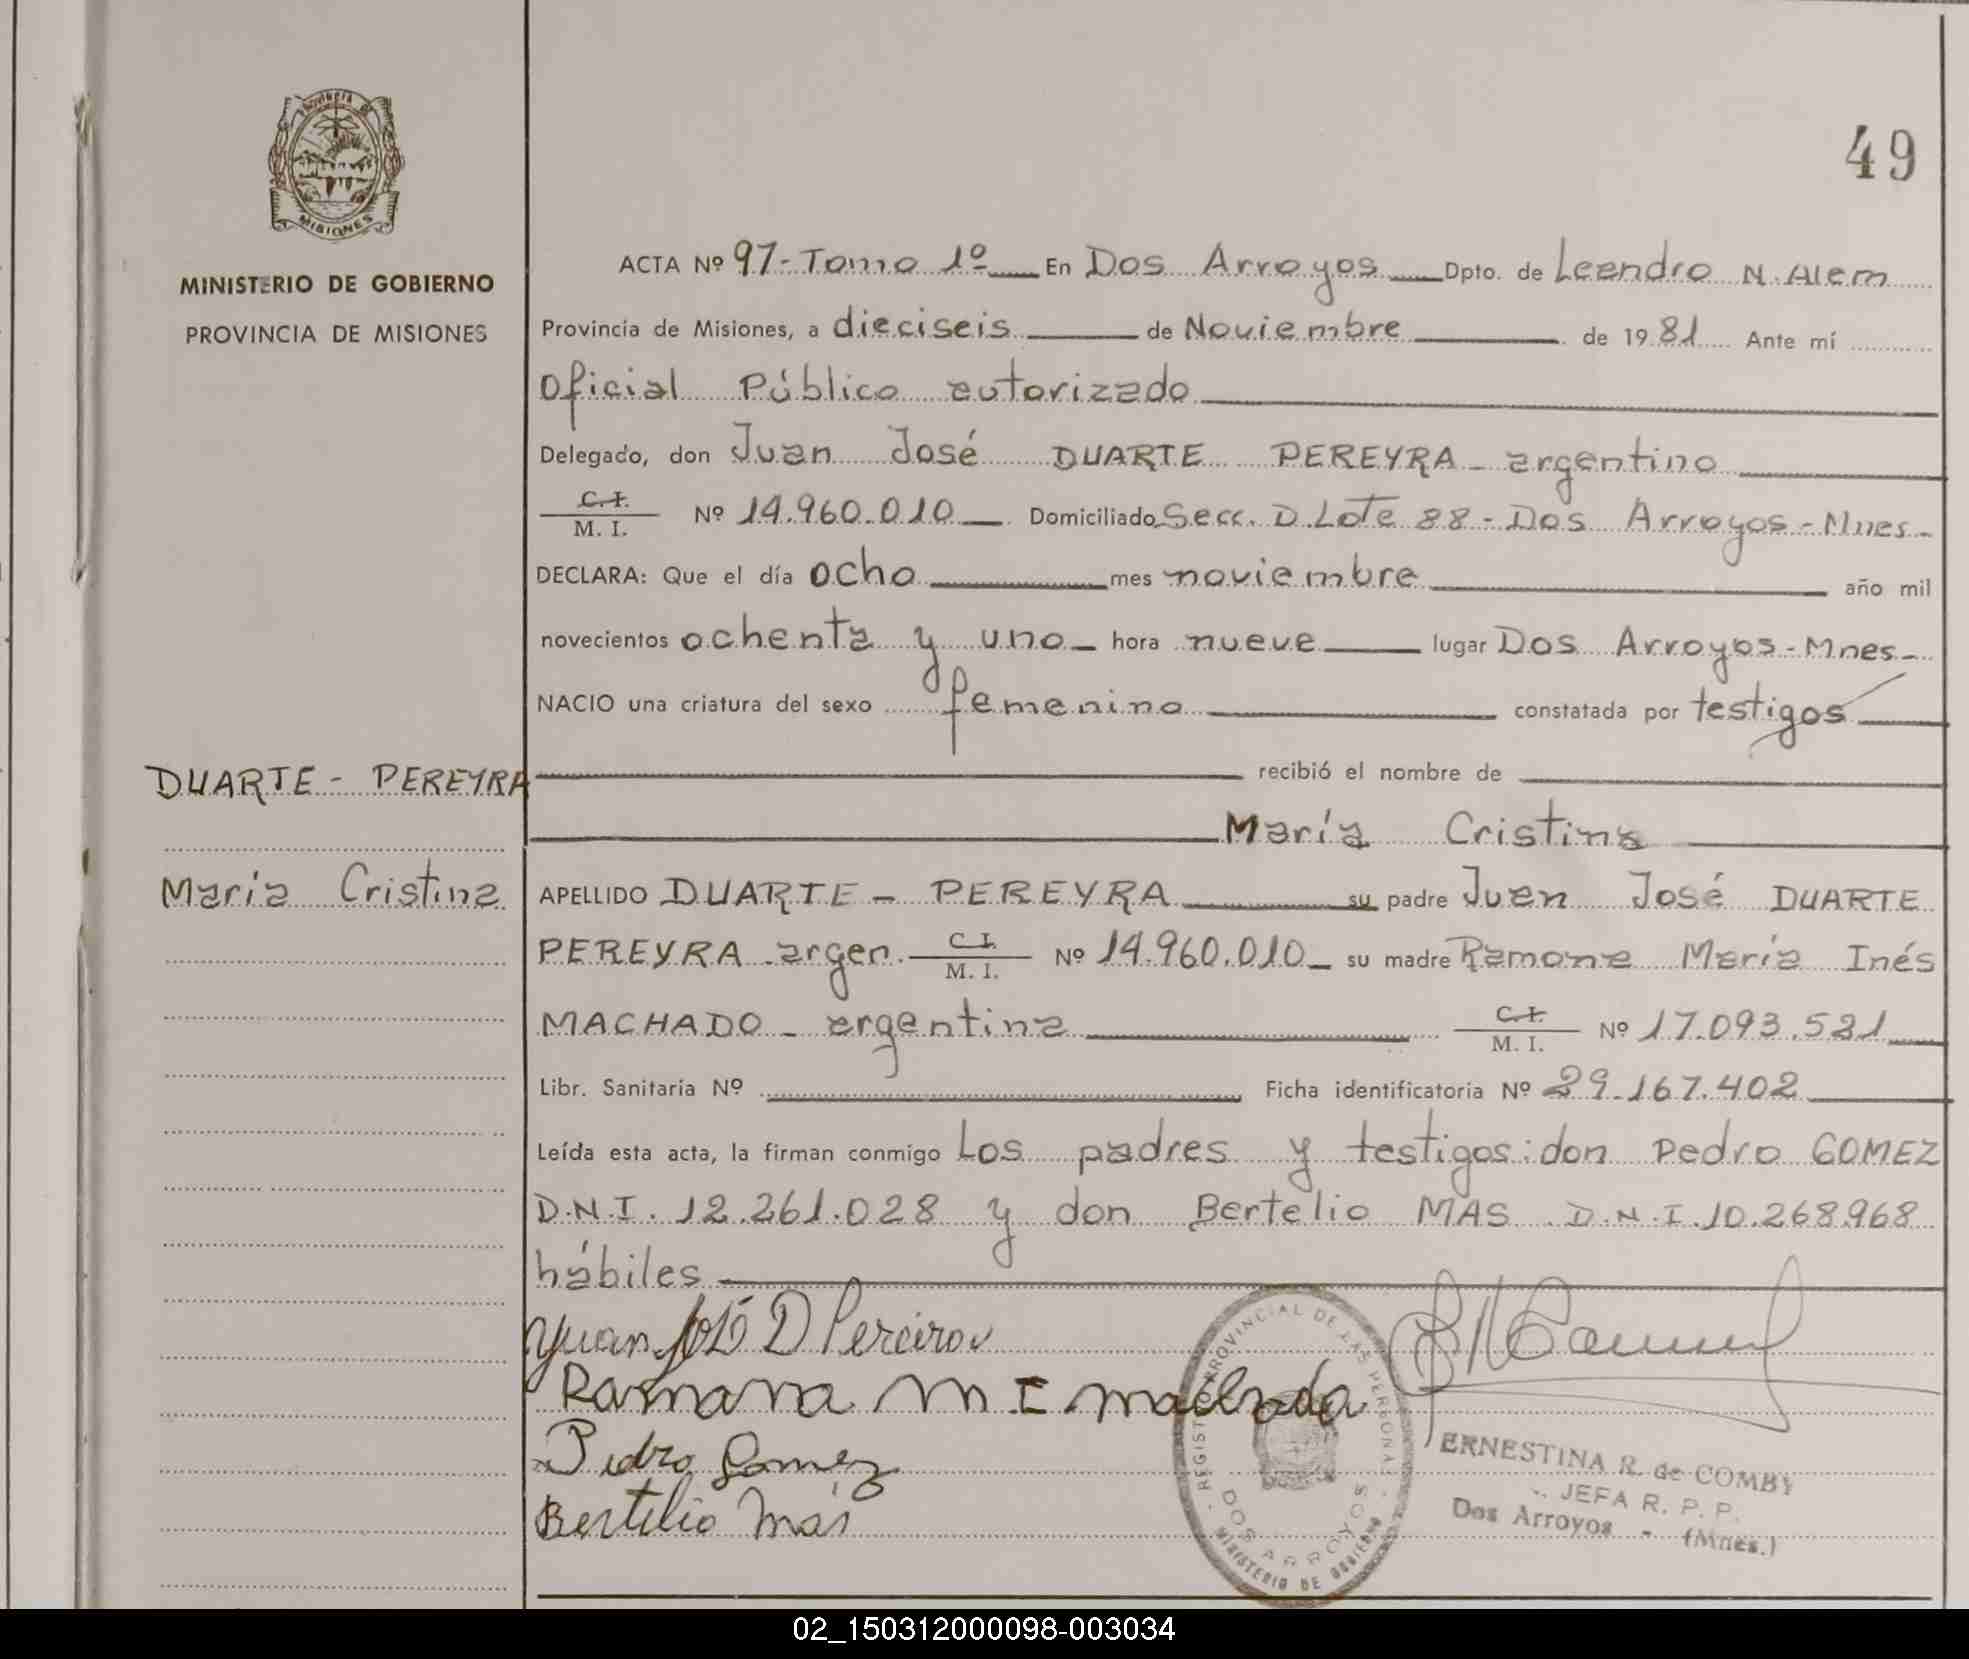 49
MINISTERIO DE GOBIERNO
PROVINCIA DE MISIONES
MISIONES
ACTA Nº 97-Tomo 1º En Dos Arroyos Dpto. de Leandro N. Alem
Provincia de Misiones, a dieciseis de Noviembre de 1981 Ante mí
Oficial Público autorizado
Delegado, don Juan José DUARTE PEREYRA - argentino
C.I.
M. I. Nº 14.960.010 Domiciliado Secc. D. Lote 88 - Dos Arroyos - Mnes -
DECLARA: Que el día ocho mes noviembre año mil
novecientos ochenta y uno hora nueve lugar Dos Arroyos - Mnes -
NACIO una criatura del sexo femenino constatada por testigos
recibió el nombre de
María Cristina
DUARTE - PEREYRA
María Cristina
APELLIDO DUARTE - PEREYRA su padre Juan José DUARTE
PEREYRA - argen. C.I.
M. I. Nº 14.960.010 su madre Ramona María Inés
MACHADO - argentina C.I.
M. I. Nº 17.093.531
Libr. Sanitaria Nº Ficha identificatoria Nº 29.167.402
Leída esta acta, la firman conmigo Los padres y testigos: don Pedro GOMEZ
D.N.I. 12.261.028 y don Bertelio MAS D.N.I. 10.268.968
hábiles
Yuan José D Pereira
Ramona M I Machado
Pedro Gomez
Bertelio Más
REGISTRO PROVINCIAL DE LAS PERSONAS
DOS ARROYOS
MINISTERIO DE GOBIERNO
ERNESTINA R. de COMBY
JEFA R. P. P.
Dos Arroyos - (Mnes.)
02_150312000098-003034